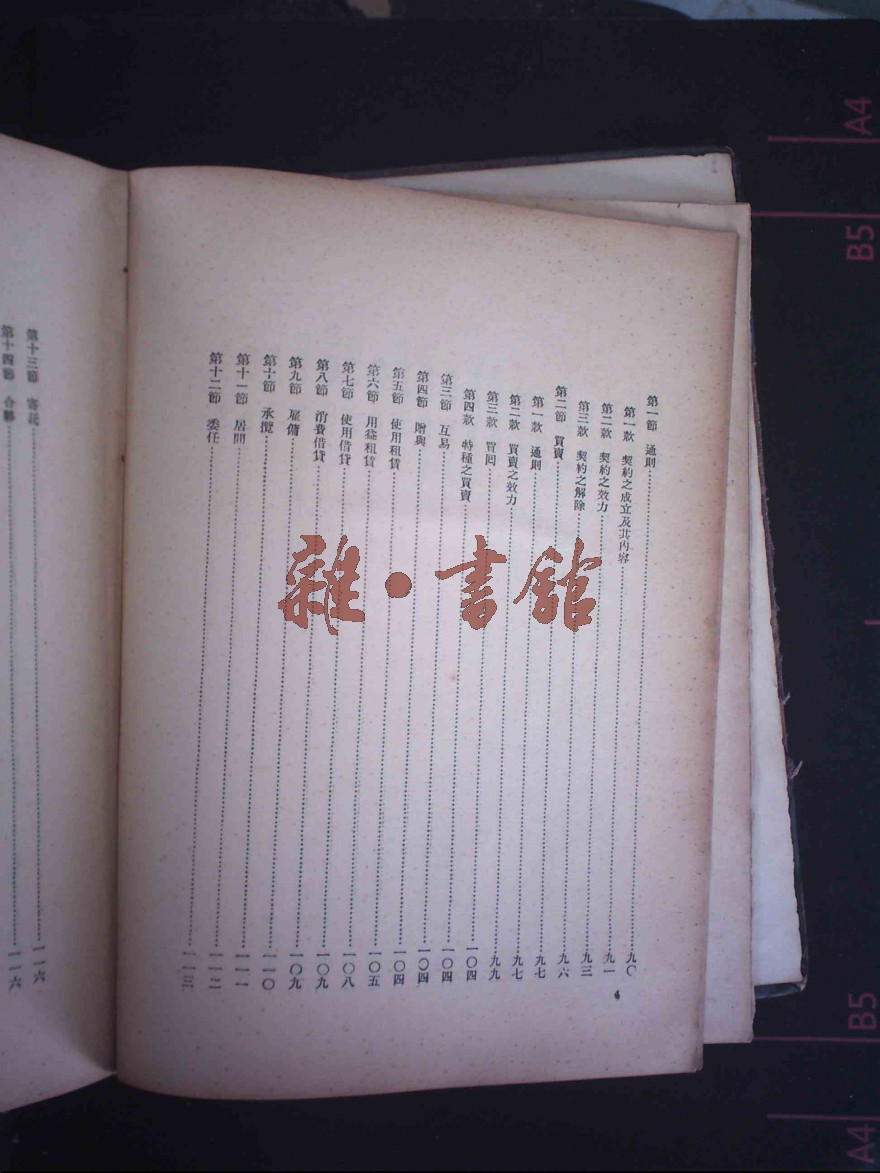 第一節 通則……九〇
第一款 契約之成立及其內容……九一
第二款 契約之效力……九三
第三款 契約之解除……九六
第二節 買賣……九七
第一款 通則……九七
第二款 買賣之效力……九九
第三款 買回……一〇四
第四款 特種之買賣……一〇四
第三節 互易……一〇四
第四節 贈與……一〇四
第五節 使用租賃……一〇五
第六節 用益租賃……一〇八
第七節 使用借貸……一〇九
第八節 消費借貸……一〇九
第九節 雇傭……一一〇
第十節 承攬……一一一
第十一節 居間……一一二
第十二節 委任……一一三
第十三節 寄託……一一六
第十四節 合夥……一一六
雜·書館
A4
B5
B5
A4